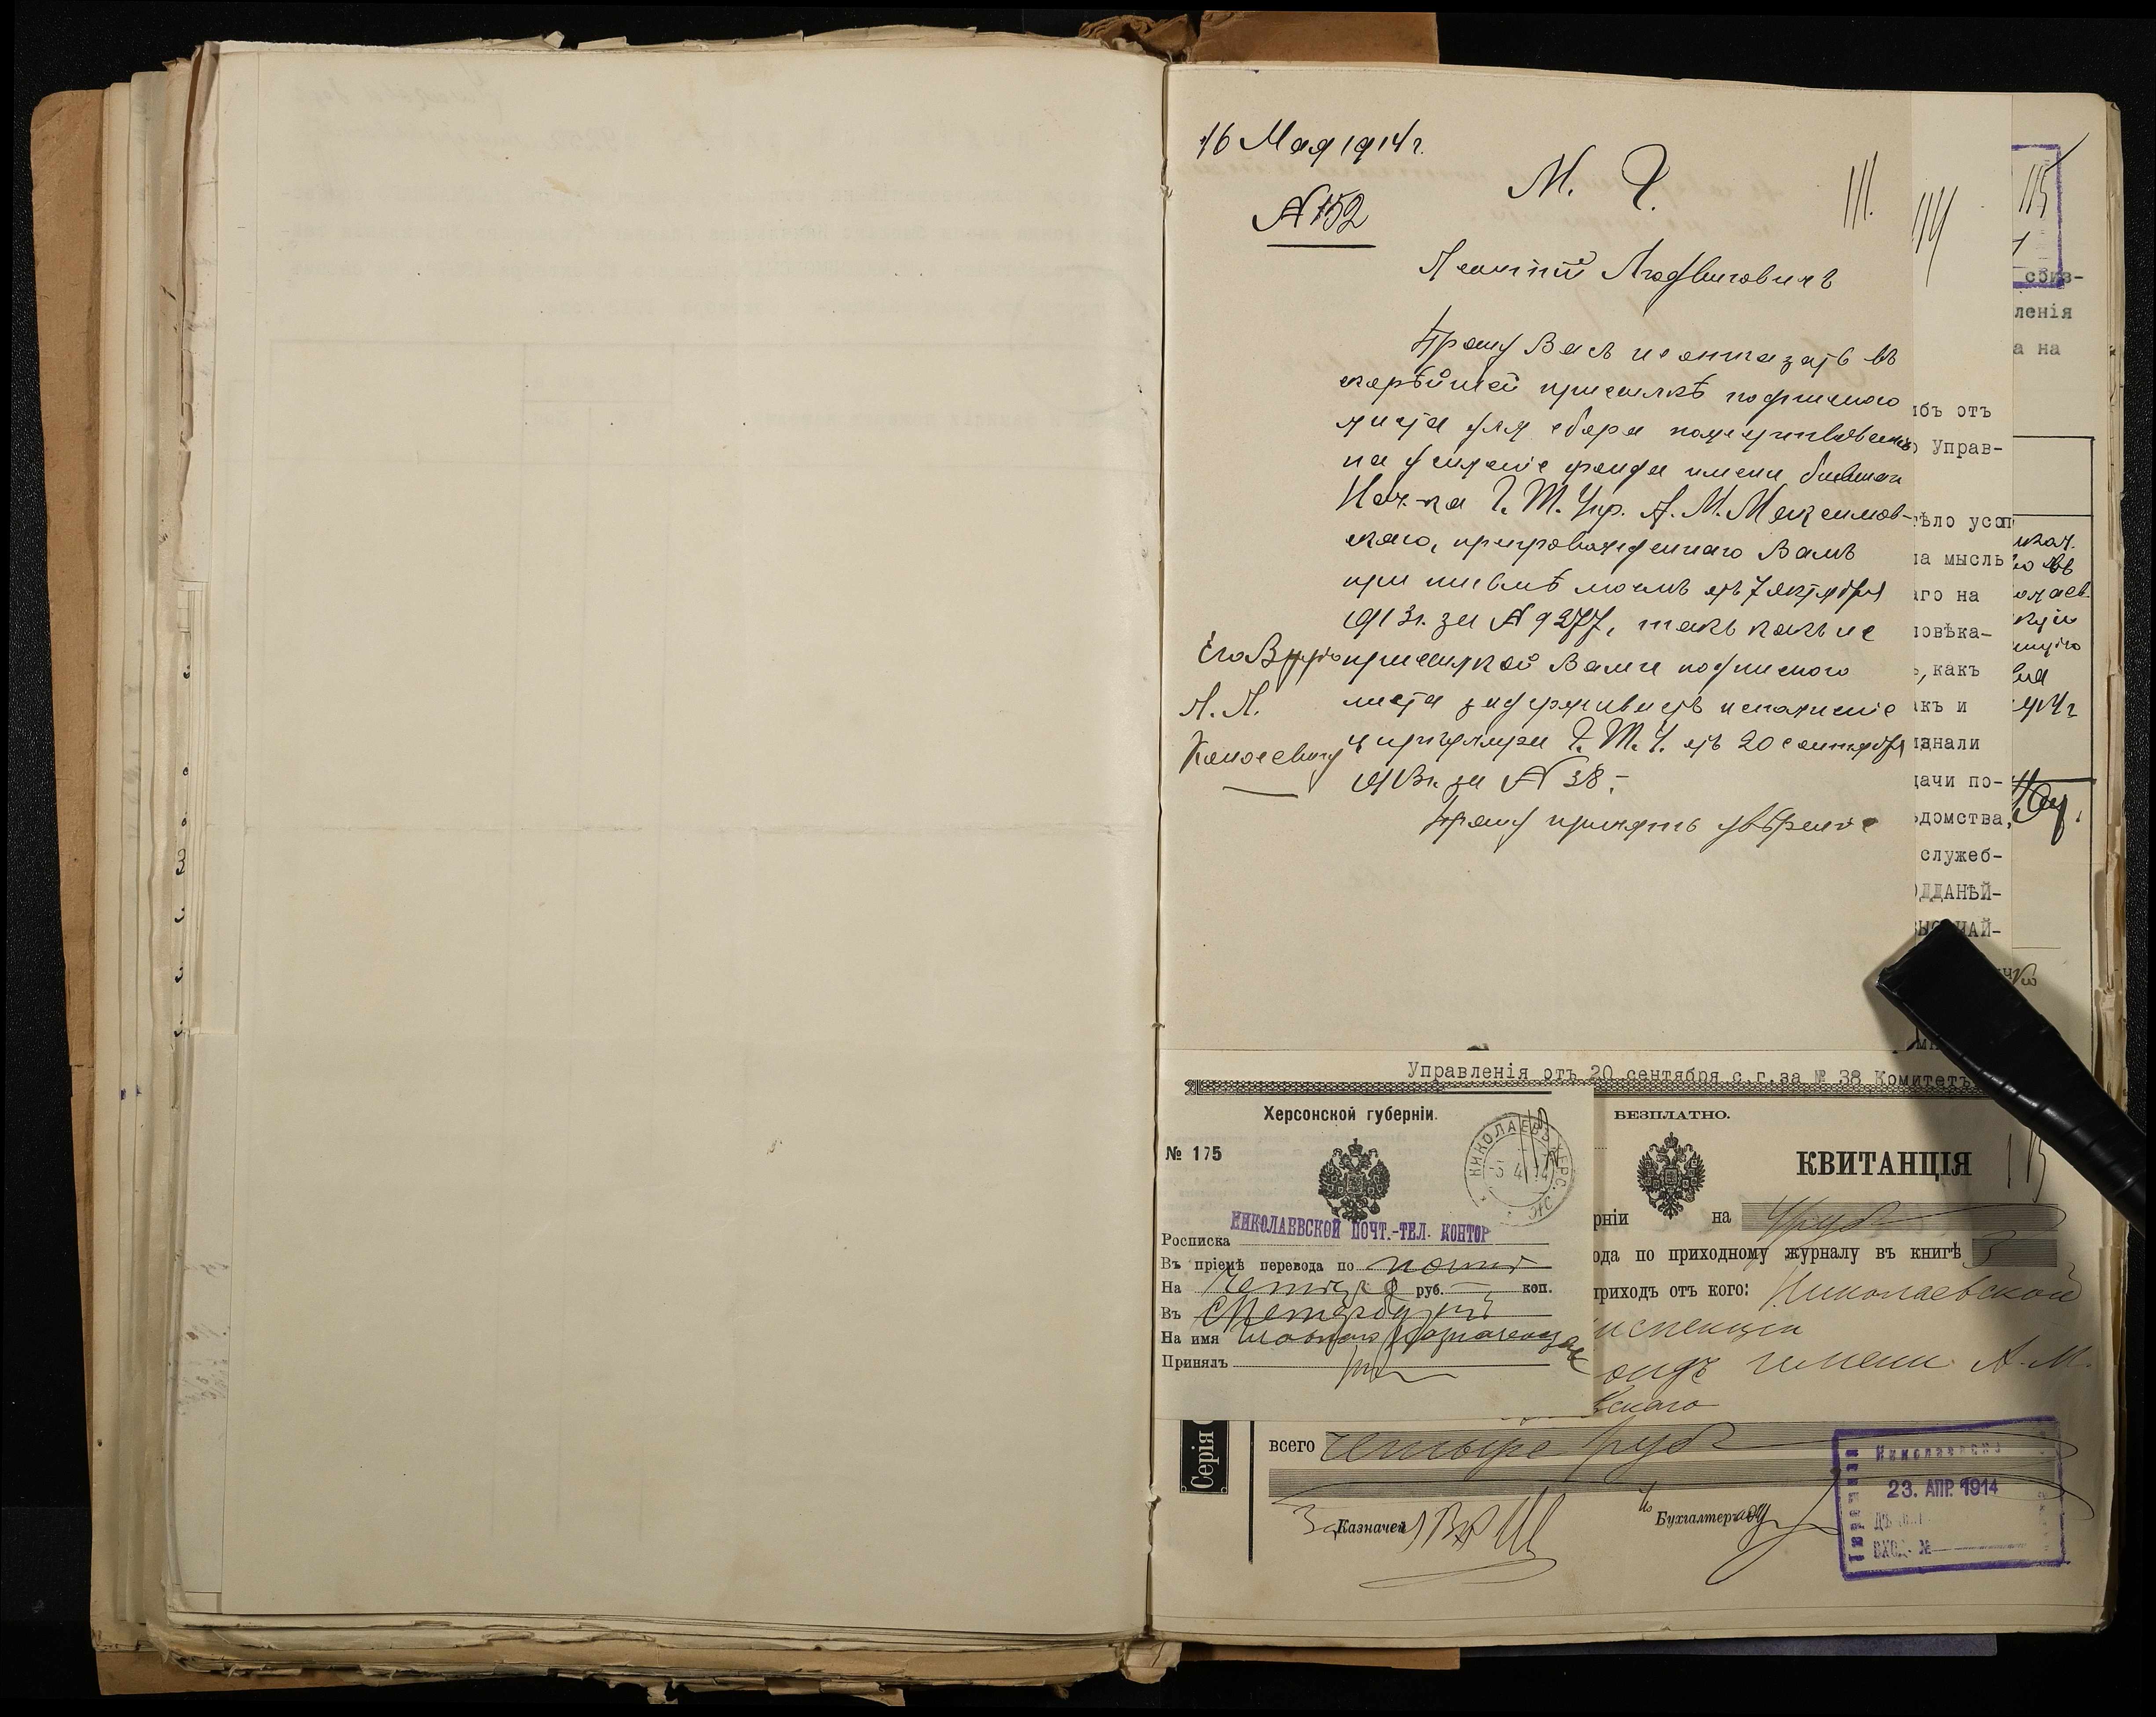 16 Мая 1914 г.
№ 152
М. Г.
111.
Леонтій Людвиговичъ
Прошу Васъ не отказать въ
скорѣйшей присылкѣ подписного
листа для сбора пожертвованій
на усиленіе фонда имени бывшаго
Нач-ка Г. Т. Упр. А. М. Максимов-
скаго, препровожденнаго Вамъ
при письмѣ моемъ отъ 7 октября
1913 г. за № 9277, такъ какъ не
присылкой Вами подписного
листа задерживается исполненіе
циркуляра Г. Т. У. отъ 20 сентября
1913 г. за № 38.-
Прошу принять увѣреніе
Его Вродію
Л. Л.
114
115
сбиз-
ленія
а на
ибъ отъ
Управ-
ѣло усоп
на мысль
аго на
ловѣка-
, какъ
акъ и
изнали
дачи по-
домства,
служеб-
ОДДАНѢЙ-
1914 г
Управленія отъ 20 сентября с.г. за № 38 Комитетъ
Херсонской губерніи.
№ 175
НИКОЛАЕВЪ ХЕРС.
НИКОЛАЕВСКОЙ ПОЧТ.-ТЕЛ. КОНТОР
Росписка
Въ пріемѣ перевода по почтѣ
На четыре руб. — коп.
Въ СПетербургъ
На имя Главнаго Казначейства
Принялъ
БЕЗПЛАТНО.
КВИТАНЦІЯ
рніи на 4 руб
ода по приходному журналу въ книгѣ 3
приходъ отъ кого: Николаевской
испекціи
ондъ имени А. М.
вскаго
Серія
всего четыре руб
За Казначея
Ио Бухгалтера
Николаевска
23. АПР. 1914
ВХОД. №
Тюремная